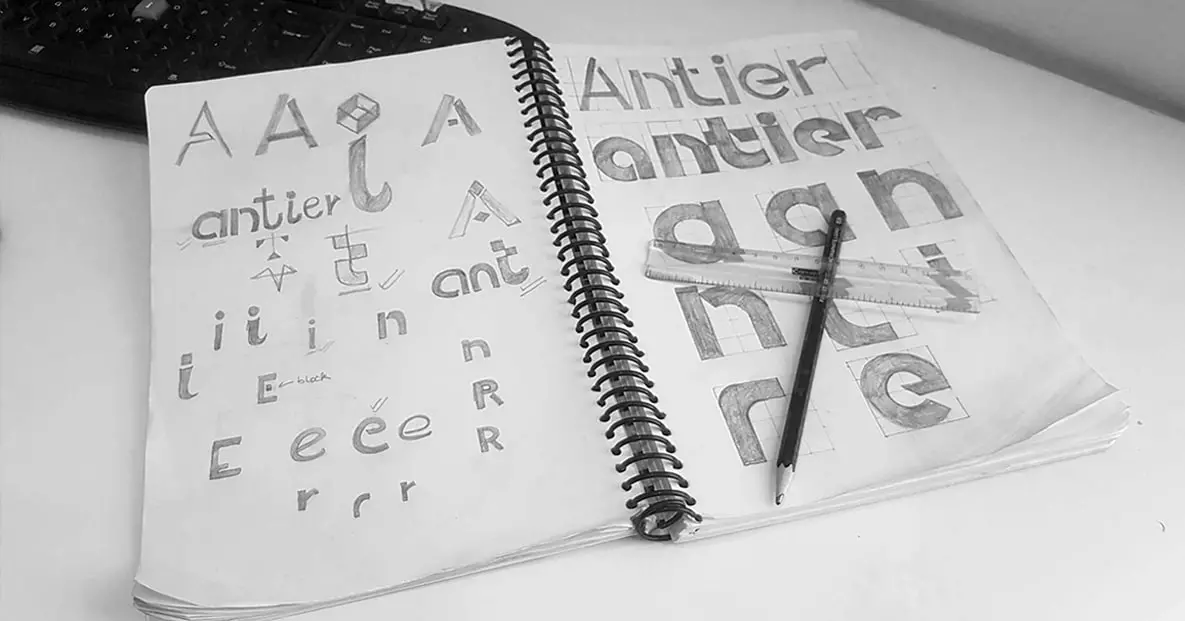 A A i A
antier
A
t
ant
i i i n
i
n
E block
R
E e e e
R
r r r
Antier
antier
a a n
n t i
r e